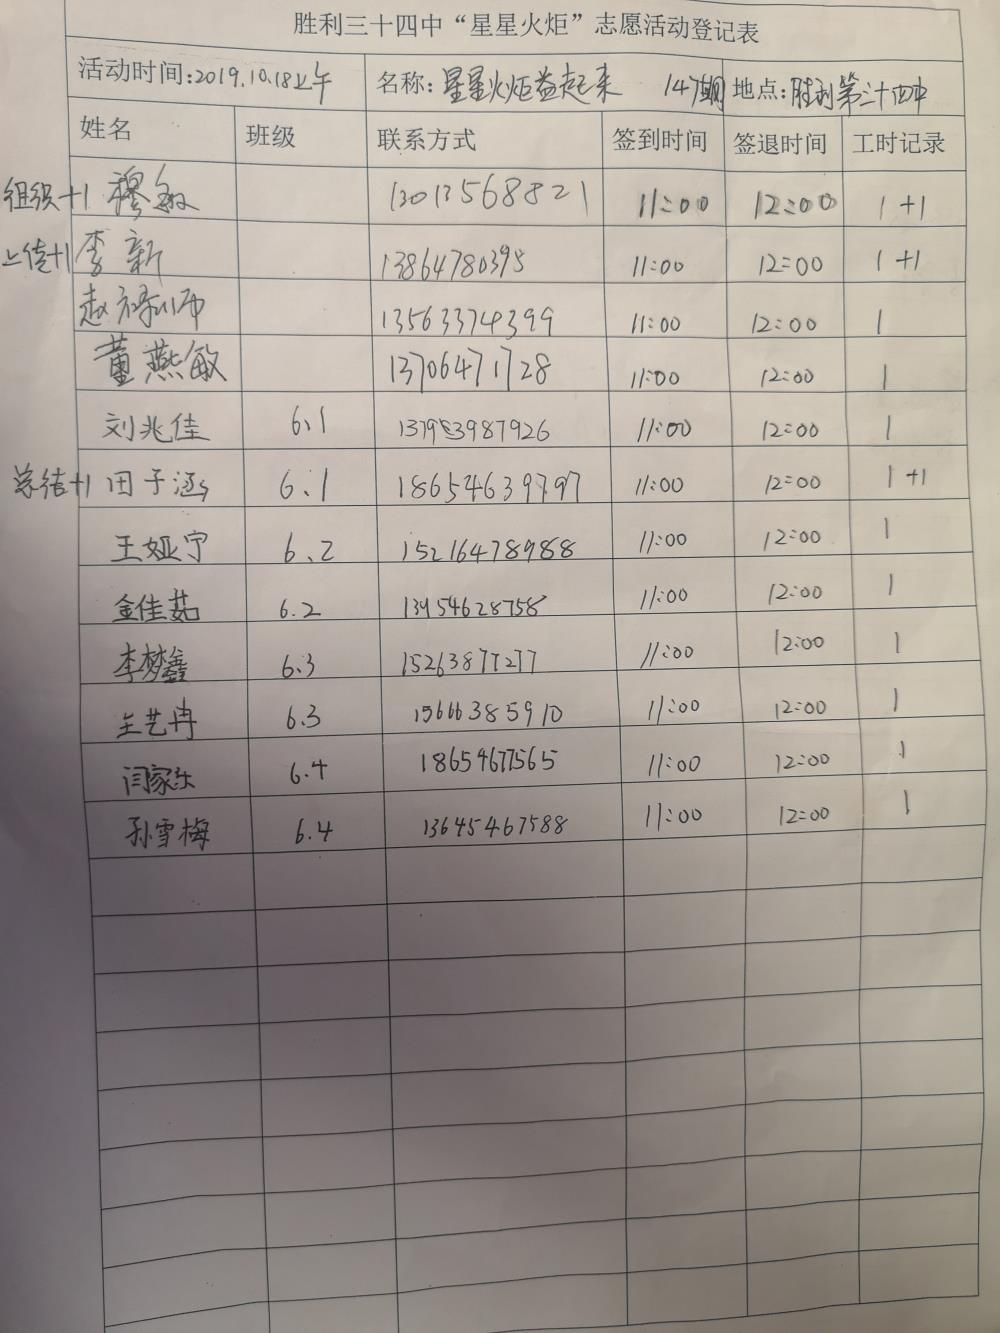 胜利三十四中“星星火炬”志愿活动登记表
活动时间:2019.10.18上午 名称:星星火炬益起来 147期 地点:胜利第三十四中
姓名 班级 联系方式 签到时间 签退时间 工时记录
组织+1 穆敏 13013568821 11:00 12:00 1+1
上传+1 李新 13864780398 11:00 12:00 1+1
赵 13563374399 11:00 12:00 1
董燕敏 13706471728 11:00 12:00 1
刘兆佳 6.1 13793987926 11:00 12:00 1
总结+1 田子涵 6.1 18654639797 11:00 12:00 1+1
王娅宁 6.2 15216478988 11:00 12:00 1
金佳茹 6.2 11:00 12:00 1
李梦鑫 6.3 15263877277 11:00 12:00 1
王艺冉 6.3 15666385910 11:00 12:00 1
闫家乐 6.4 18654677565 11:00 12:00 1
孙雪梅 6.4 13645467588 11:00 12:00 1